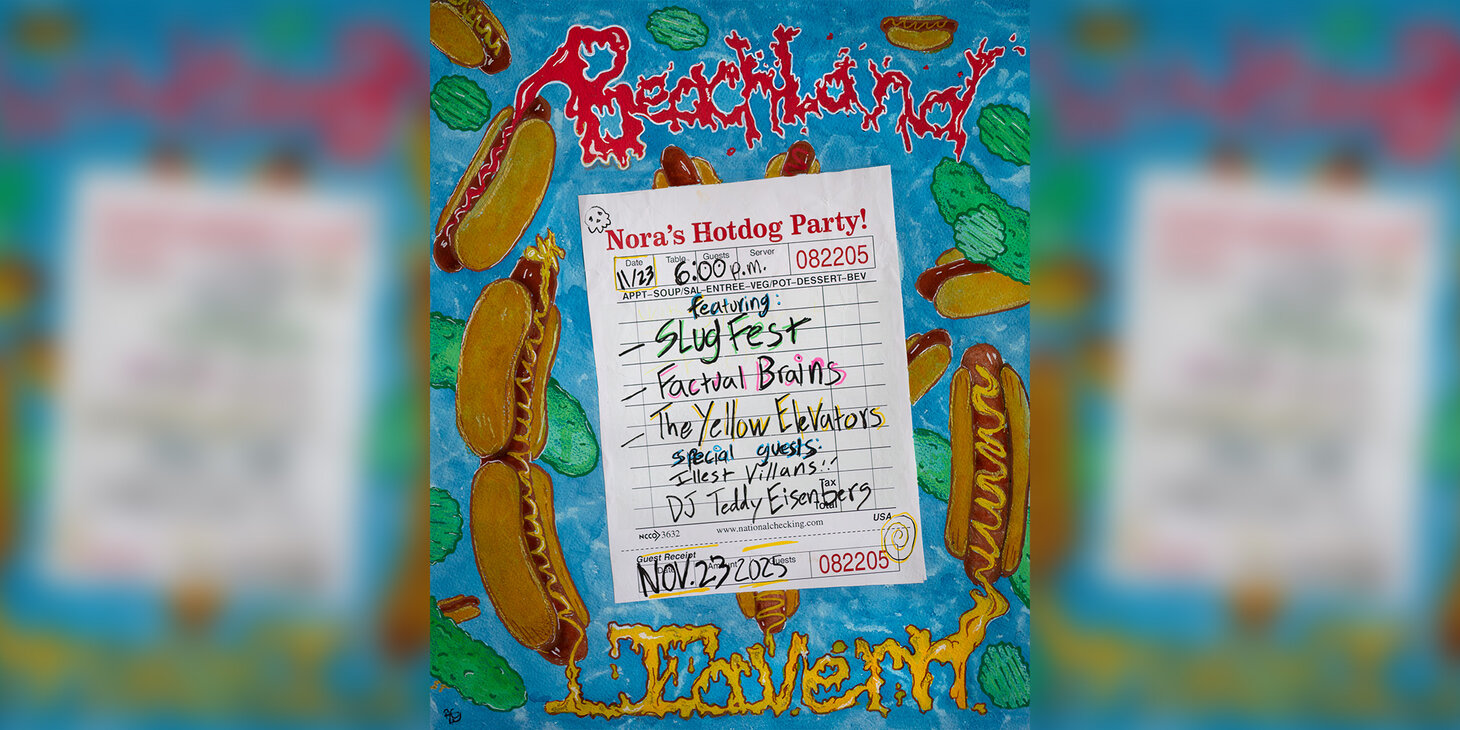 BeachLand
Nora's Hotdog Party!
Date Table Guests Server
11/23 6:00 p.m. 082205
APPT-SOUP/SAL-ENTREE-VEG/POT-DESSERT-BEV
featuring:
- SLugFest
- Factual Brains
- The Yellow Elevators
special guests:
Illest Villans!!
Tax
DJ Teddy Eisenberg
Total
www.nationalchecking.com
NCCO 3632
USA
Guest Receipt
Date Amount Guests
NOV. 23 2025 082205
Tavern